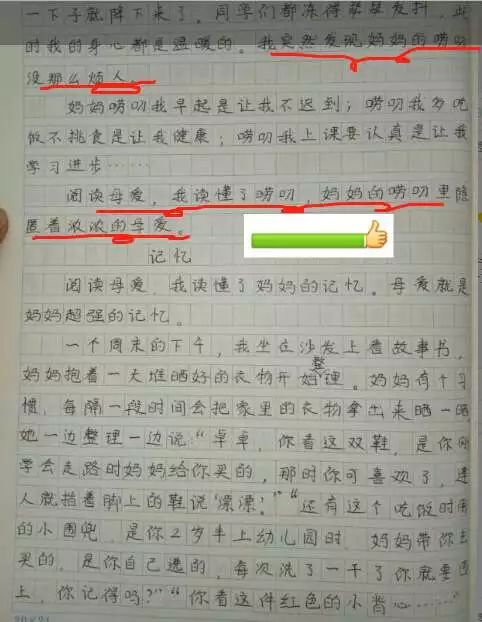 一下子就降下来了。同学们都冻得瑟瑟发抖，此
时我的身心都是温暖的。我突然发现妈妈的唠叨
没那么烦人。
妈妈唠叨我早起是让我不迟到；唠叨我多吃
饭不挑食是让我健康；唠叨我上课要认真是让我
学习进步……
阅读母爱，我读懂了唠叨，妈妈的唠叨里隐
匿着浓浓的母爱。
记忆
阅读母�，我读懂了妈妈的记忆。母爱就是
妈妈超强的记忆。
一个周末的下午，我坐在沙发上看故事书，
妈妈抱着一大堆晒好的衣物开始整理。妈妈有个习
惯，每隔一段时间会把家里的衣物拿出来晒一晒
她一边整理一边说“卓卓，你看这双鞋，是你刚
学会走路时妈妈给你买的，那时你可喜欢了，逢
人就指着脚上的鞋说‘漂漂！’”“还有这个吃饭时用
的小围兜，是你2岁半上幼儿园时，妈妈带你去
买的，是你自己选的，每次洗了一干了你就要
上，你记得吗？”“你看这件红色的小背心……”